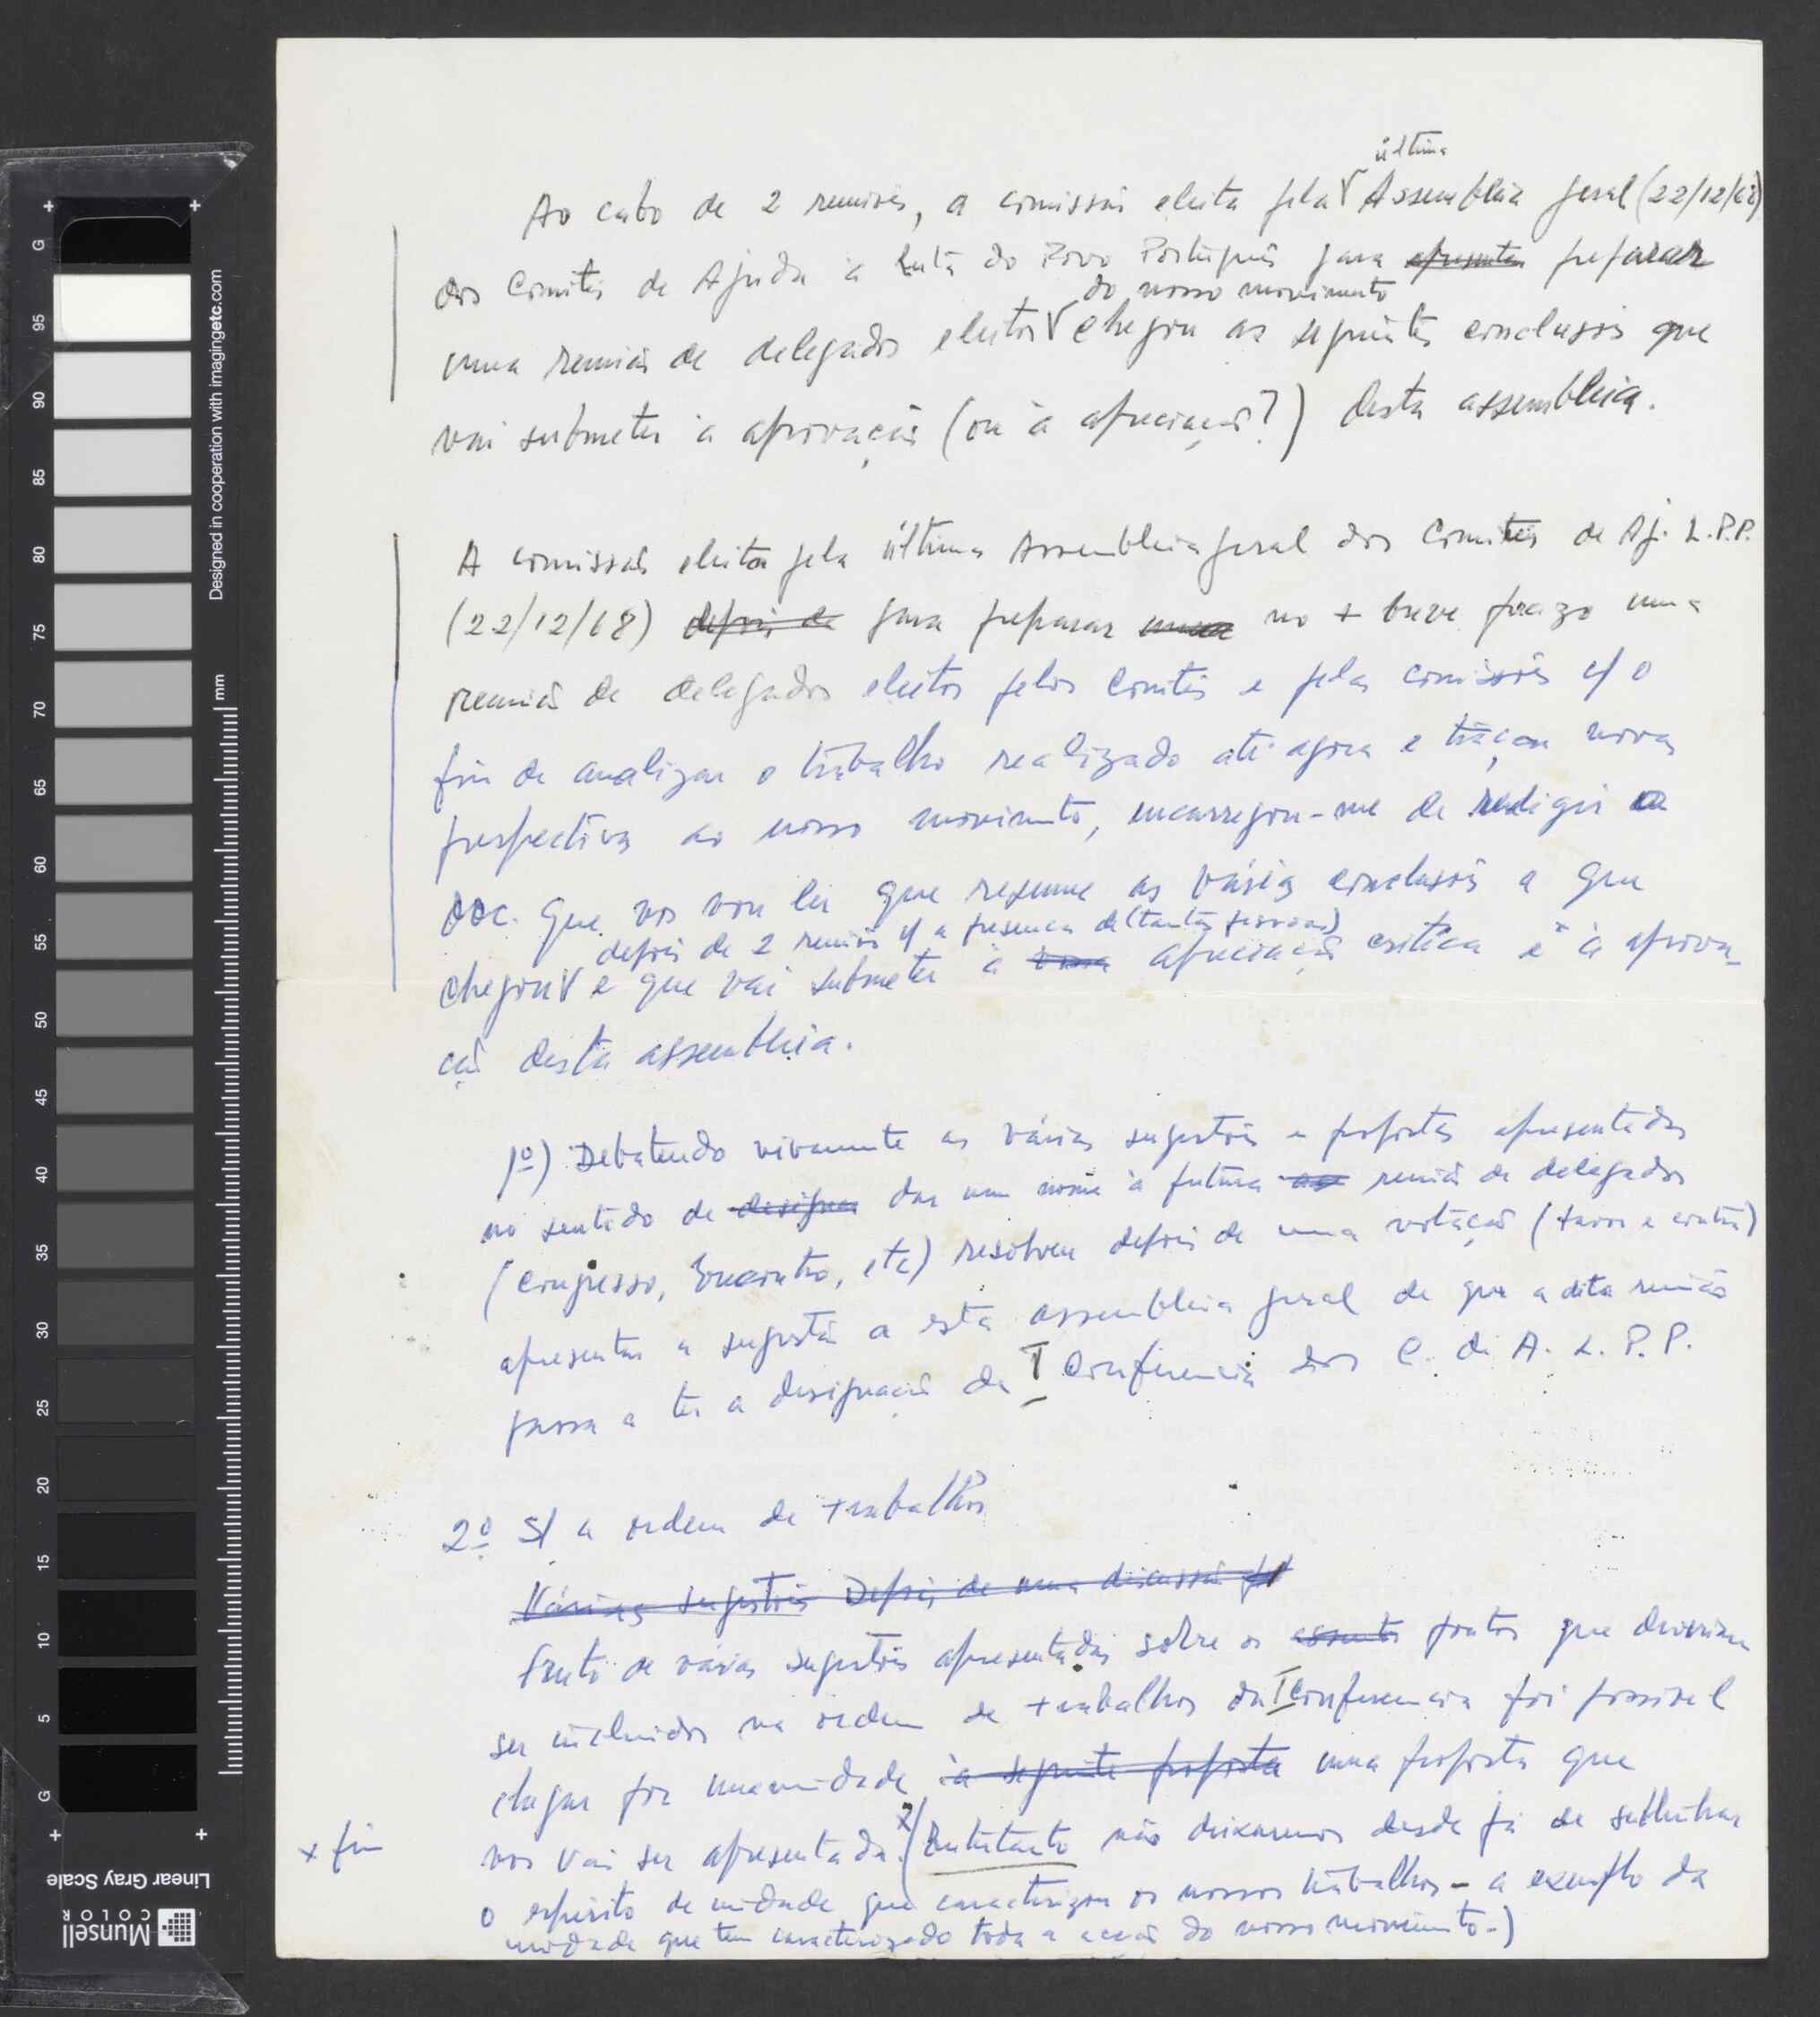 última
Ao cabo de 2 reuniões, a comissão eleita pela Assembleia geral (22/12/68)
dos Comités de Ajuda à Luta do Povo Português para apresentar preparar
do nosso movimento
uma reunião de delegados eleitos chegou as seguintes conclusões que
vai submeter à aprovação (ou à apreciação?) desta assembleia.
A comissão eleita pela última Assembleia geral dos Comités de Aj. L.P.P.
(22/12/68) depois de para preparar uma no + breve prazo uma
reunião de delegados eleitos pelos Comités e pelas comissões c/ o
fim de analizar o trabalho realizado até agora e traçar novas
perspectivas ao nosso movimento, encarregou-me de redigir o
doc. que vos vou ler que resume as várias conclusões a que
depois de 2 reuniões c/ a presença de (tantas pessoas)
chegou e que vai submeter à apreciação crítica e à aprova-
ção desta assembleia.
1º) Debatendo vivamente as várias sugestões e propostas apresentadas
no sentido de designar dar um nome à futura reunião de delegados
(Congresso, Encontro, etc) resolveu depois de uma votação (favor e contra)
apresentar a sugestão a esta assembleia geral de que a dita reunião
passa a ter a designação de I Conferencia dos C. de A. L. P. P.
2º S/ a ordem de trabalhos
Várias sugestões Depois de uma discussão
Fruto de várias sugestões apresentadas sobre os assuntos pontos que deveriam
ser incluidos na ordem de trabalhos da I Conferencia foi possivel
chegar por unanimidade à seguinte proposta uma proposta que
vos vai ser apresentada. x (Entretanto não deixaremos desde já de sublinhar
x fim
o espírito de unidade que caracterizou os nossos trabalhos - a exemplo da
unidade que tem caracterizado toda a acção do nosso movimento.)
Designed in cooperation with imagingetc.com
mm
G
95
90
85
80
75
70
65
60
55
50
45
40
35
30
25
20
15
10
5
G
Linear Gray Scale
Munsell
COLOR